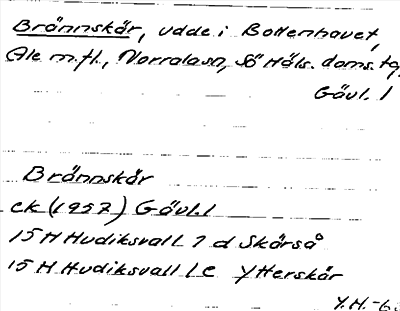 Brännskär, udde i Bottenhavet,
Ale m.fl., Norrala sn, Sö Häls. doms. tg,
Gävl. l
Brännskär
ek (1957) Gävl. l
15 H Hudiksvall 7 d Skärså
15 H Hudiksvall 1 e Ytterskär
Y.H. -6